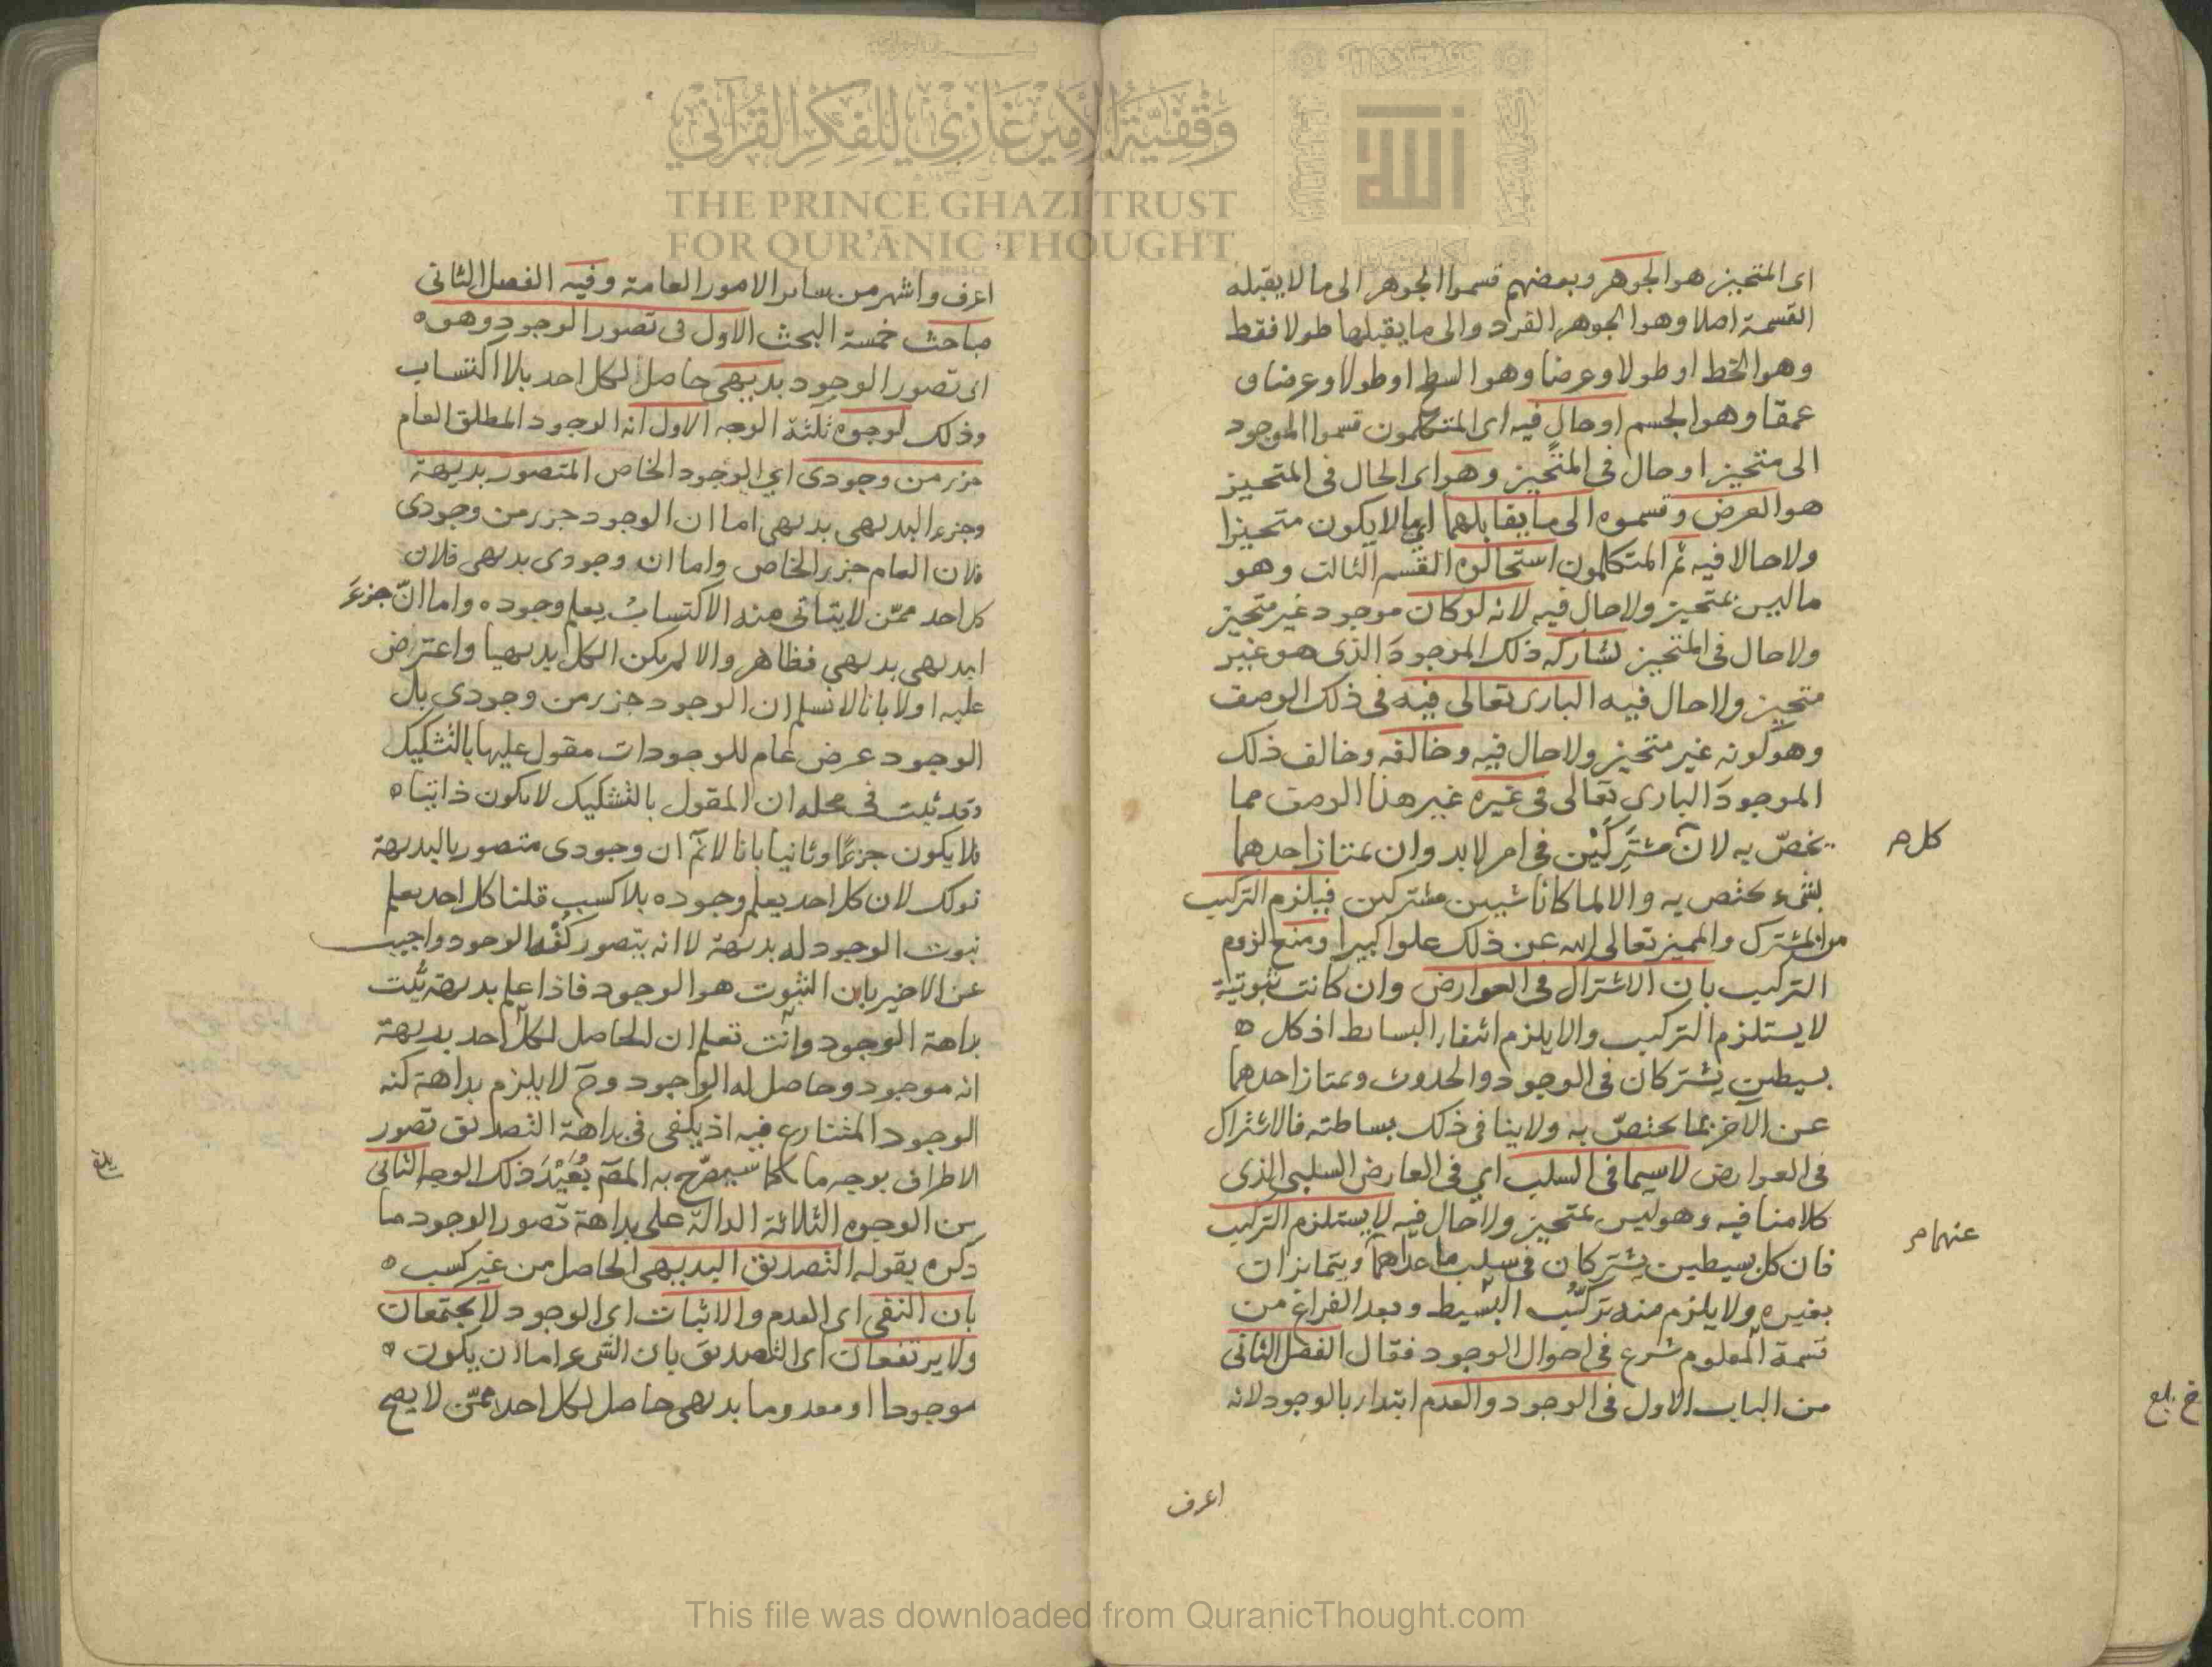 وقفية الأمير غازي للفكر القرآني
THE PRINCE GHAZI TRUST
FOR QUR'ĀNIC THOUGHT
الله
اى المتحيز هو الجوهر وبعضهم قسموا الجوهر الى ما لا يقبله
القسمة اصلا وهو الجوهر الفرد والى ما يقبلها طولا فقط
وهو الخط او طولا وعرضا وهو السطح او طولا وعرضا و
عمقا وهو الجسم او حال فيه اى المتكلمون قسموا الموجود
الى متحيز او حال فى المتحيز وهو اى الحال فى المتحيز
هو العرض وقسموه الى ما يقابلهما اى ما لا يكون متحيزا
ولا حالا فيه ثم المتكلمون استحالوه القسم الثالث وهو
ما ليس بمتحيز ولا حال فيه لانه لو كان موجود غير متحيز
ولا حال فى المتحيز لشاركه ذلك الموجود الذى هو غير
متحيز ولا حال فيه البارى تعالى فيه فى ذلك الوصف
وهو كونه غير متحيز ولا حال فيه وخالفه وخالف ذلك
الموجود البارى تعالى فى غيره غير هذا الوصف مما
يخصّ به لان مشتركين فى امر لابد وان يمتاز احدهما
كل م
بشىء يختص به والا لما كانا شيين مشتركين فيلزم التركيب
من المشترك والمميز تعالى الله عن ذلك علوا كبيرا ومنع لزوم
التركيب بان الاشتراك فى العوارض وان كانت ثبوتية
لا يستلزم التركيب والا يلزم انتفاء البسائط اذ كل ٥
بسيطين يشتركان فى الوجود والحدوث ويمتاز احدهما
عن الآخر بما يختصّ به ولا ينافى ذلك بساطته فالاشتراك
فى العوارض لا سيما فى السلب اى فى العارض السلبى الذى
كلامنا فيه وهو ليس بمتحيز ولا حال فيه لا يستلزم التركيب
فان كل بسيطين يشتركان فى سلب ما عداهما ويتمايزان
عنهما م
بغيره ولا يلزم منه تركّب البسيط وبعد الفراغ من
قسمة المعلوم شرع فى احوال الوجود فقال الفصل الثانى
من الباب الاول فى الوجود والعدم ابتداء بالوجود لانه
اعرف
اعرف واشهر من سائر الامور العامة وفيه الفصل الثانى
مباحث خمسة البحث الاول فى تصور الوجود وهو ٥
اى تصور الوجود بديهى حاصل لكل احد بلا اكتساب
وذلك لوجوه ثلثة الوجه الاول انه الوجود المطلق العام
جزء من وجودى اى الوجود الخاص المتصور بديهة
وجزء البديهى بديهى اما ان الوجود جزء من وجودى
فلان العام جزء الخاص واما ان وجودى بديهى فلان
كل احد ممّن لا يتأتى منه الاكتساب يعلم وجوده واما انّ جزء
البديهى بديهى فظاهر والا لم يكن الكل بديهيا واعترض
عليه اولا بانا لا نسلم ان الوجود جزء من وجودى بل
الوجود عرض عام للوجودات مقول عليها بالتشكيك
وقد ثبت فى محله ان المقول بالتشكيك لا يكون ذاتيا ٥
فلا يكون جزءًا وثانيا بانا لا نم ان وجودى متصور بالبديهة
قولك لان كل احد يعلم وجوده بلا كسب قلنا كل احد يعلم
ثبوت الوجود له بديهة لا انه يتصور كنه الوجود واجيب
عن الاخير بان الثبوت هو الوجود فاذا علم بديهة ثبت
بداهة الوجود وانت تعلم ان الحاصل لكل احد بديهة
انه موجود وحاصل له الوجود وح لا يلزم بداهة كنه
الوجود المتنازع فيه اذ يكفى فى بداهة التصديق تصور
الاطراف بوجه ما كما سيصرّح به المص بُعَيْدَ ذلك الوجه الثانى
من الوجوه الثلاثة الدالة على بداهة تصور الوجود ما
ذكره بقوله التصديق البديهى الحاصل من غير كسب ٥
بان النفى اى العدم والاثبات اى الوجود لا يجتمعان
ولا يرتفعان اى التصديق بان الشىء اما ان يكون ٥
موجودا او معدوما بديهى حاصل لكل احد ممّن لا يصح
This file was downloaded from QuranicThought.com